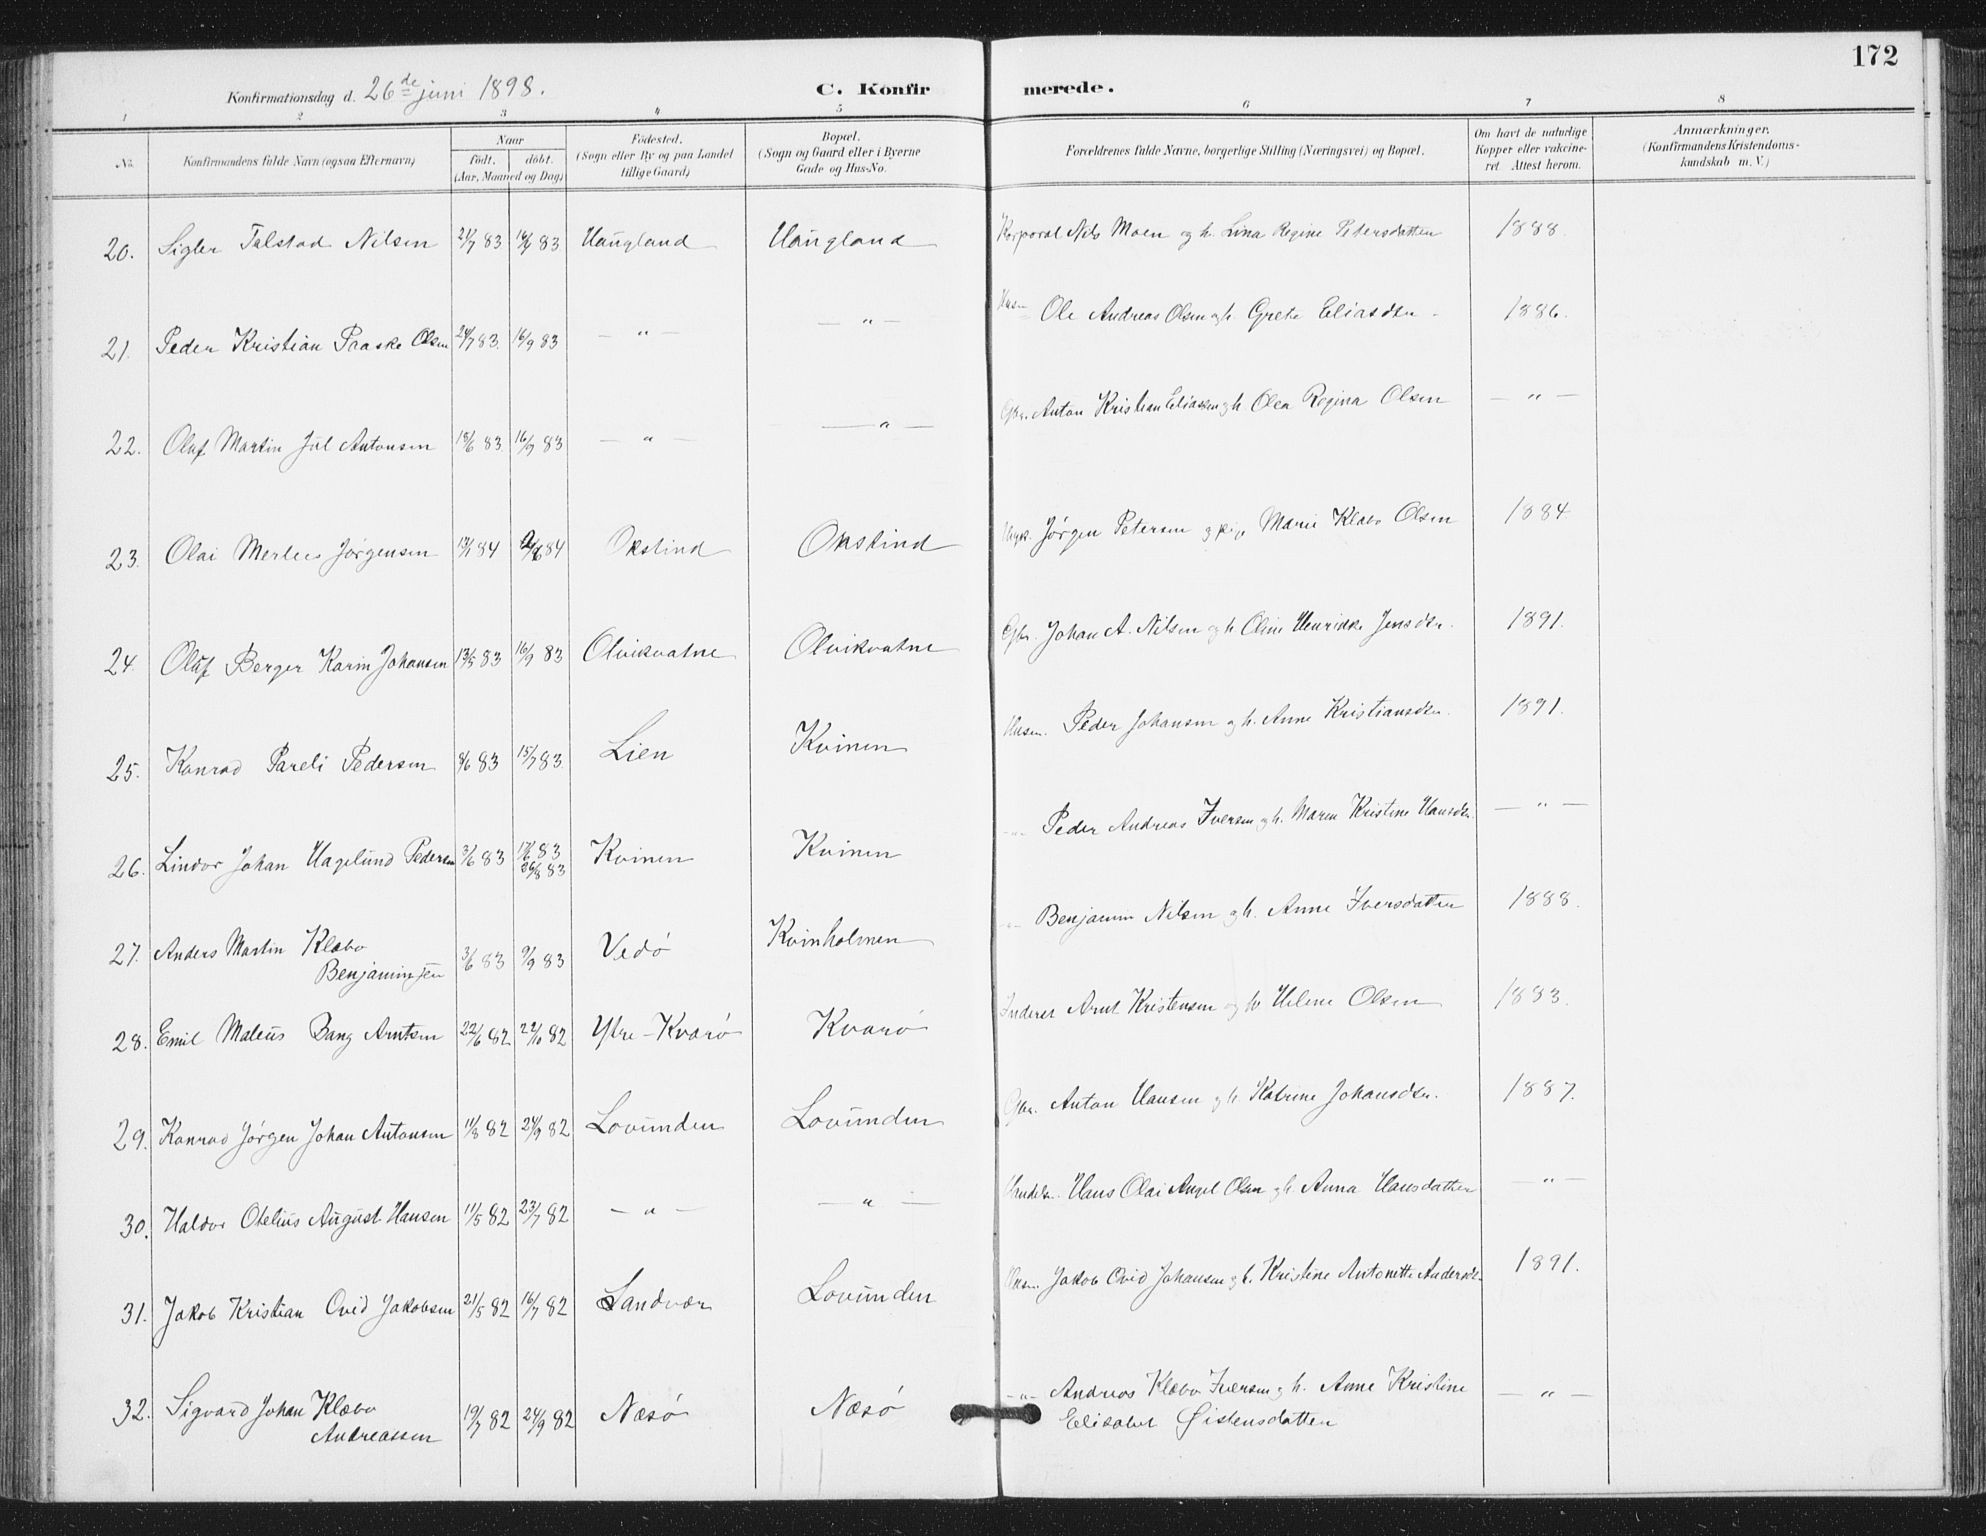 172
Konfirmationsdag d. 26de juni 1898. C. Konfirmerede.
1 2 3 4 5 6 7 8
No. Konfirmandens fulde Navn (ogsaa Efternavn) Naar født. døbt. (Aar, Maaned og Dag) Fødested. (Sogn eller By og paa Landet tillige Gaard) Bopæl. (Sogn og Gaard eller i Byerne Gade og Hus-No. Forældrenes fulde Navne, borgerlige Stilling (Næringsvei) og Bopæl. Om havt de naturlige Kopper eller vakcineret Attest herom. Anmærkninger. (Konfirmandens Kristendomskundskab m. V.)
20. Sigler Talstad Nilsen 21/7 83 16/9 83 Haugland Haugland Korporal Nils Moen og h. Lina Regine Petersdatter 1888.
21. Peder Kristian Paaske Olsen 24/7 83. 16/9 83 — " — — " — Husm Ole Andreas Olsen og h. Grete Eliasdtr. 1886.
22. Oluf Martin Jul Antonsen 18/6 83. 16/9 83 — " — — " — Gbr. Anton Kristian Eliassen og h Olea Regina Olsen — " —
23. Olai Merlees Jørgensen 13/1 84 84 Okstind Okstind Jørgen Petersen og pige Marie Klæbo Olsen 1884
24. Oluf Berger Karin Johansen 13/5 83 16/9 83 Olvikvatne Olvikvatne Gbr. Johan A. Nilsen og h Oline Henrikke Jensdtr. 1891.
25. Konrad Pareli Pedersen 8/6 83 15/7 83. Lien Kvinen Husm. Peder Johansen og h. Anne Kristiansdtr. 1891.
26. Lindor Johan Hagelund Pedersen 3/6 83 17/6 83 26/8 83 Kvinen Kvinen -"- Peder Andreas Iversen og h. Maren Kristine Hansdtr. — " —
27. Anders Martin Klæbo Benjaminsen 3/6 83 9/9 83 Vedø Kvinholmen -"- Benjamin Nilsen og h. Anne Iversdatter 1888.
28. Emil Mateus Bang Arntsen 22/6 82 22/10 82 Ytre-Kvarø Kvarø Inderst Arnt Kristensen og h Helene Olsen 1883.
29. Konrad Jørgen Johan Antonsen 11/8 82 24/9 82 Lovunden Lovunden Gbr. Anton Hansen og h Katrine Johansdtr. 1887.
30. Haldor Otelius August Hansen 11/5 82 23/7 82 — " — — " — Handelsm. Hans Olai Angel Olsen og h. Anna Hansdatter — " —
31. Jakob Kristian Ovid Jakobsen 21/5 82 16/7 82 Sandvær Lovunden Husm. Jakob Ovid Johansen og h. Kristine Antonette Andersdtr. 1891.
32. Sigvard Johan Klæbo Andreassen 19/7 82 24/9 82 Næsø Næsø -"- Andreas Klæbo Iversen og h. Anne Kristine Elisabet Øistensdatter — " —